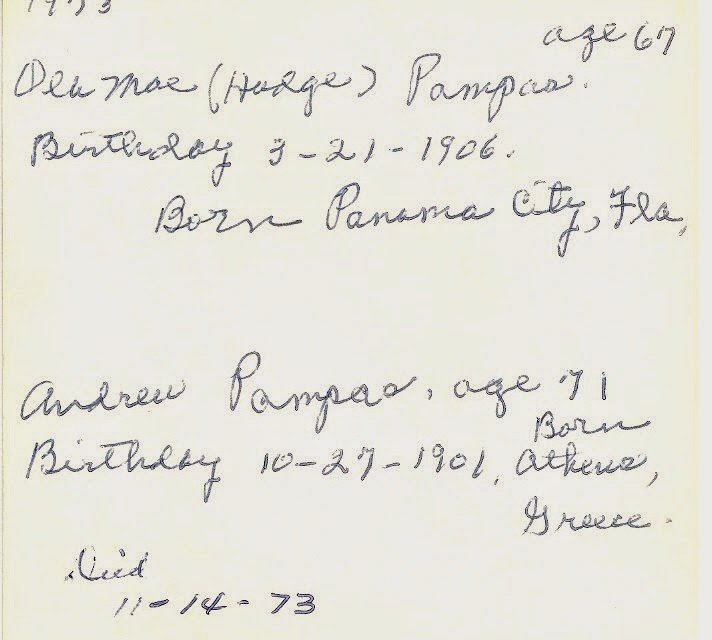 1973
age 67
Ola Mae (Hodge) Pampas.
Birthday 3-21-1906.
Born Panama City, Fla,
Andrew Pampas, age 71
Born
Birthday 10-27-1901, Athens,
Greece.
Died
11-14-73